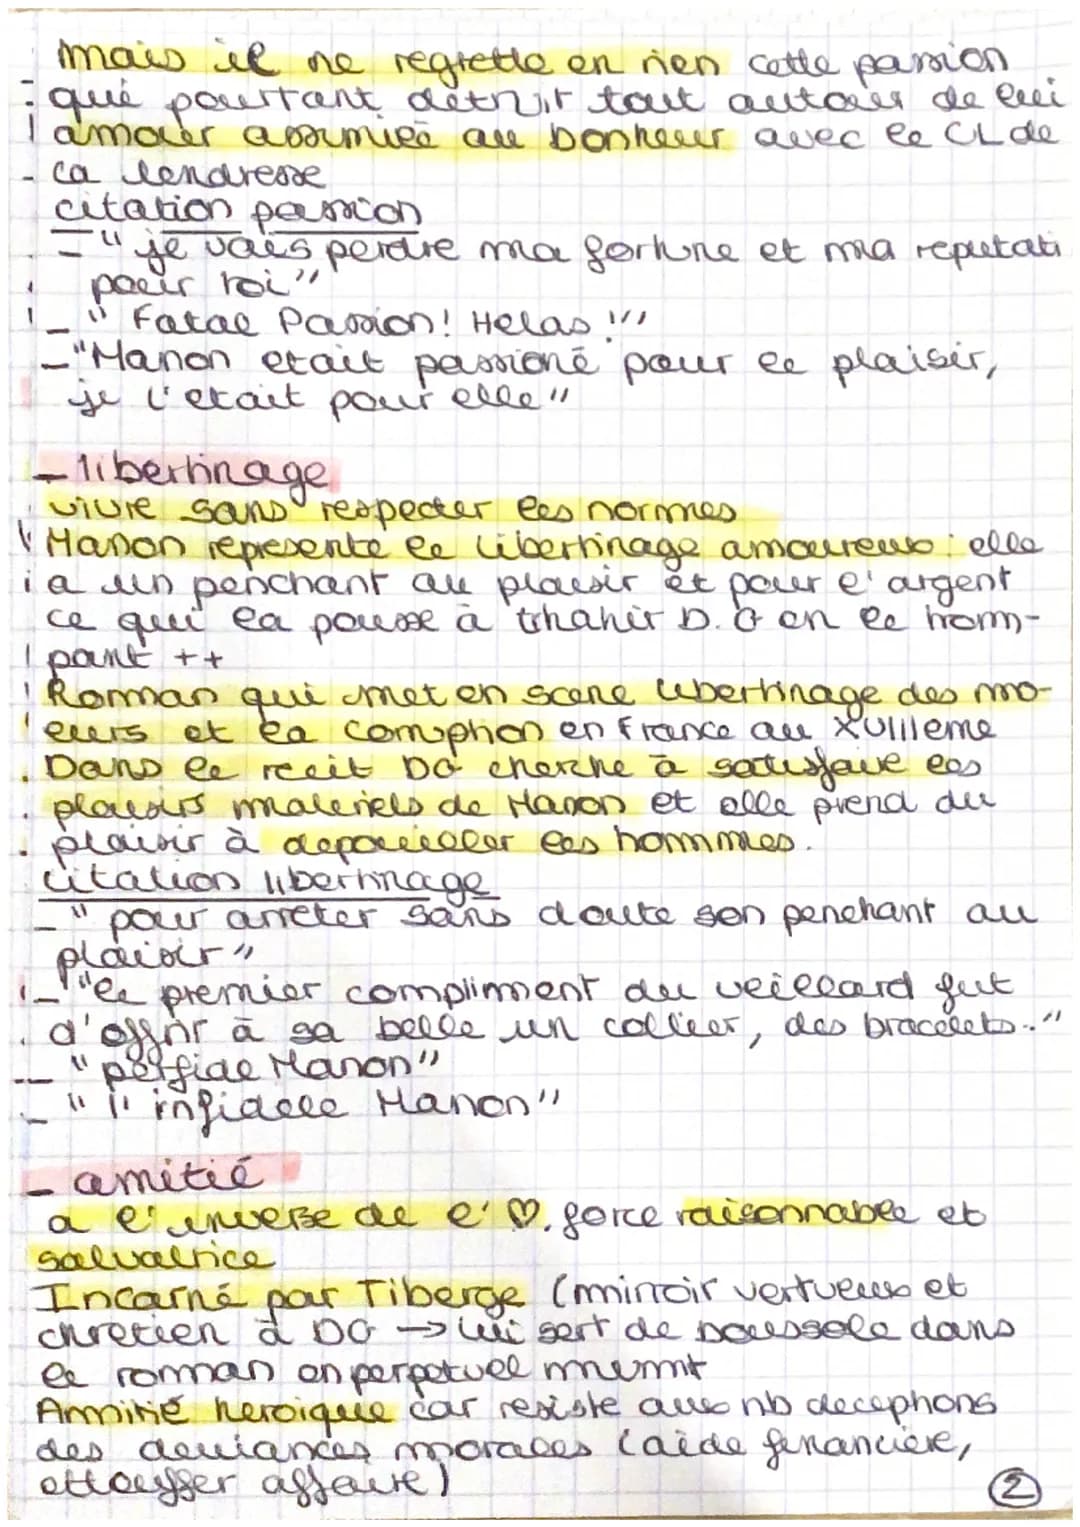 mais il ne regrette en rien cette passion
qui pourtant detruit tout autour de lui
amour assimilé au bonheur avec le CL de
ca tendresse
citation passion
- "je vais perdre ma fortune et ma reputati
pour toi"
- "Fatale Passion! Helas!"
- "Manon etait passioné pour le plaisir,
je l'etait pour elle"
- libertinage
vivre sans respecter les normes
Manon represente le libertinage amoureux : elle
a un penchant au plaisir et pour l'argent
ce qui la pousse à trhahir D.G en le trom-
pant ++
Roman qui met en scene libertinage des mo-
eurs et la corruption en France au XVIIIeme
Dans le recit DG cherche à satisfaire les
plaisirs materiels de Manon et elle prend du
plaisir à depouiller les hommes.
citation libertinage
- "pour arreter sans doute son penchant au
plaisir"
- "le premier compliment du veillard fut
d'offrir à sa belle un collier, des bracelets.."
- "perfide Manon"
- "l'infidele Manon"
- amitié
a l'inverse de l'♡, force raisonnable et
salvatrice
Incarné par Tiberge (mirroir vertueux et
chretien à DG → lui sert de boussole dans
le roman en perpetuel mvmt
Amitié heroique car resiste aux nb deceptions
des deviances morales (aide financière,
ettouffer affaire)
2